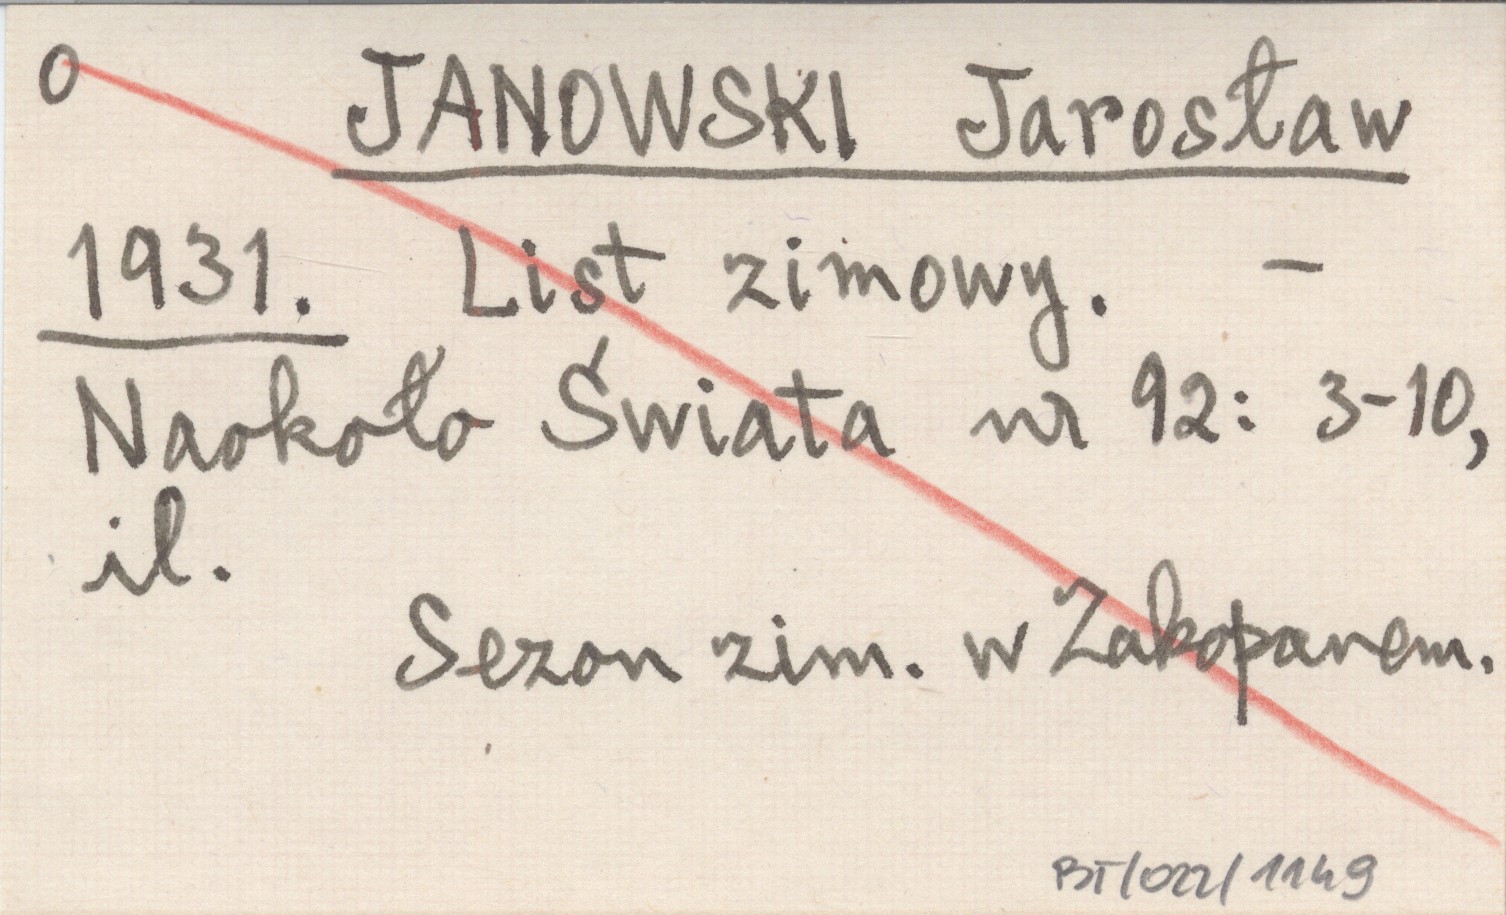 O JANOWSKI Jarosław
1931. List zimowy. –
Naokoło Świata nr 92: 3-10,
il.
Sezon zim. w Zakopanem.
BT/022/1149